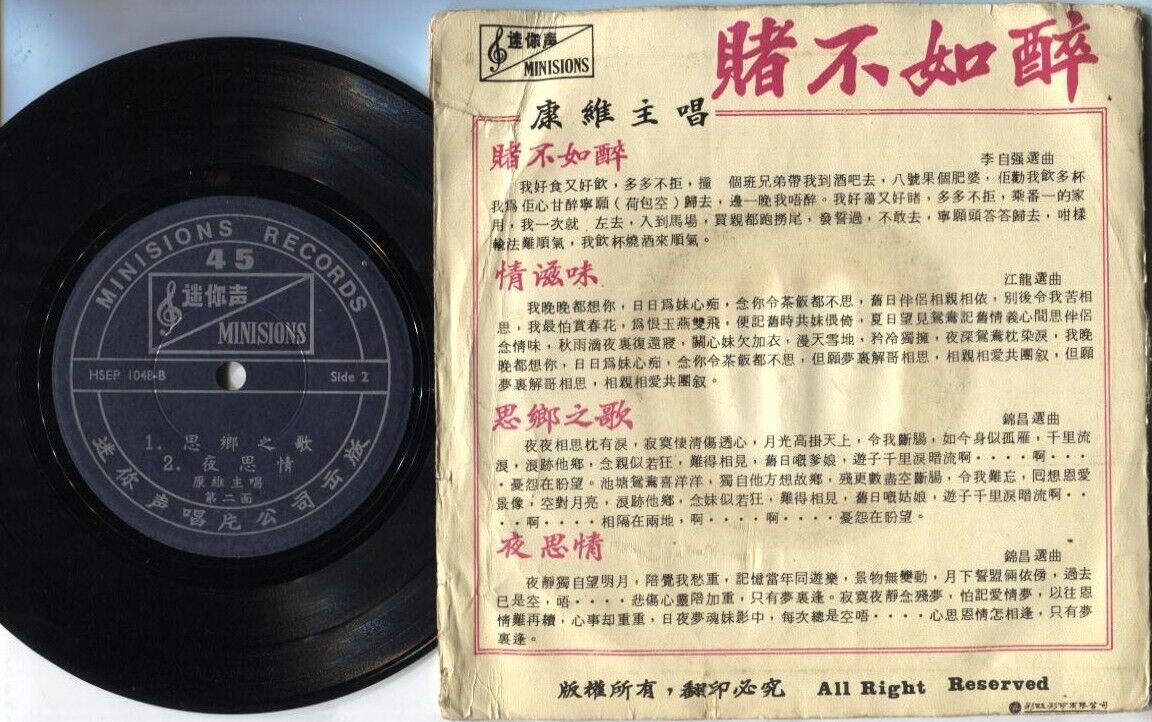 MINISIONS RECORDS
45
迷你声
MINISIONS
HSEP 1048-B
Side 2
1. 思鄉之歌
2. 夜思情
康維主唱
第二面
迷你声唱片公司出版
迷你声
MINISIONS
賭不如醉
康維主唱
賭不如醉
李自强選曲
我好食又好飲，多多不拒，撞　個班兄弟帶我到酒吧去，八號果個肥婆，佢勸我飲多杯
我爲佢心甘醉寧願（荷包空）歸去，邊一晚我唔醉。我好蕩又好賭，多多不拒，乘番一的家
用，我一次就　左去，入到馬場，買親都跑撈尾，發誓過，不敢去，寧願頭答答歸去，咁樣
輸法難順氣，我飲杯燒酒來順氣。
情滋味
江龍選曲
我晚晚都想你，日日爲妹心痴，念你令茶飯都不思，舊日伴侶相親相依，別後令我苦相
思，我最怕賞春花，爲恨玉燕雙飛，便記舊時共妹偎倚，夏日望見鴛鴦記舊情義心間思伴侶
念情味，秋雨滴夜裏復還寢，關心妹欠加衣，漫天雪地，衿冷獨擁，夜深鴛鴦枕染淚，我晚
晚都想你，日日爲妹心痴，念你令茶飯都不思，但願夢裏解哥相思，相親相愛共團叙，但願
夢裏解哥相思，相親相愛共團叙。
思鄉之歌
錦昌選曲
夜夜相思枕有淚，寂寞悽清傷透心，月光高掛天上，令我斷腸，如今身似孤雁，千里流
淚，淚跡他鄉，念親似若狂，難得相見，舊日嘅爹娘，遊子千里淚暗流啊‥‥啊‥‥
‥憂怨在盼望。池塘鴛鴦喜洋洋，獨自他方想故鄉，殘更數盡空斷腸，令我難忘，回想恩愛
景像，空對月亮，淚跡他鄉，念妹似若狂，難得相見，舊日嘅姑娘，遊子千里淚暗流啊‥
‥啊‥‥相隔在兩地，啊‥‥啊‥‥憂怨在盼望。
夜思情
錦昌選曲
夜靜獨自望明月，陪覺我愁重，記憶當年同遊樂，景物無變動，月下誓盟倆依傍，過去
已是空，唔‥‥悲傷心靈陪加重，只有夢裏逢。寂寞夜靜念殘夢，怕記愛情夢，以往恩
情難再續，心事却重重，日夜夢魂妹影中，每次總是空唔‥‥心思恩情怎相逢，只有夢
裏逢。
版權所有，翻印必究 All Right Reserved